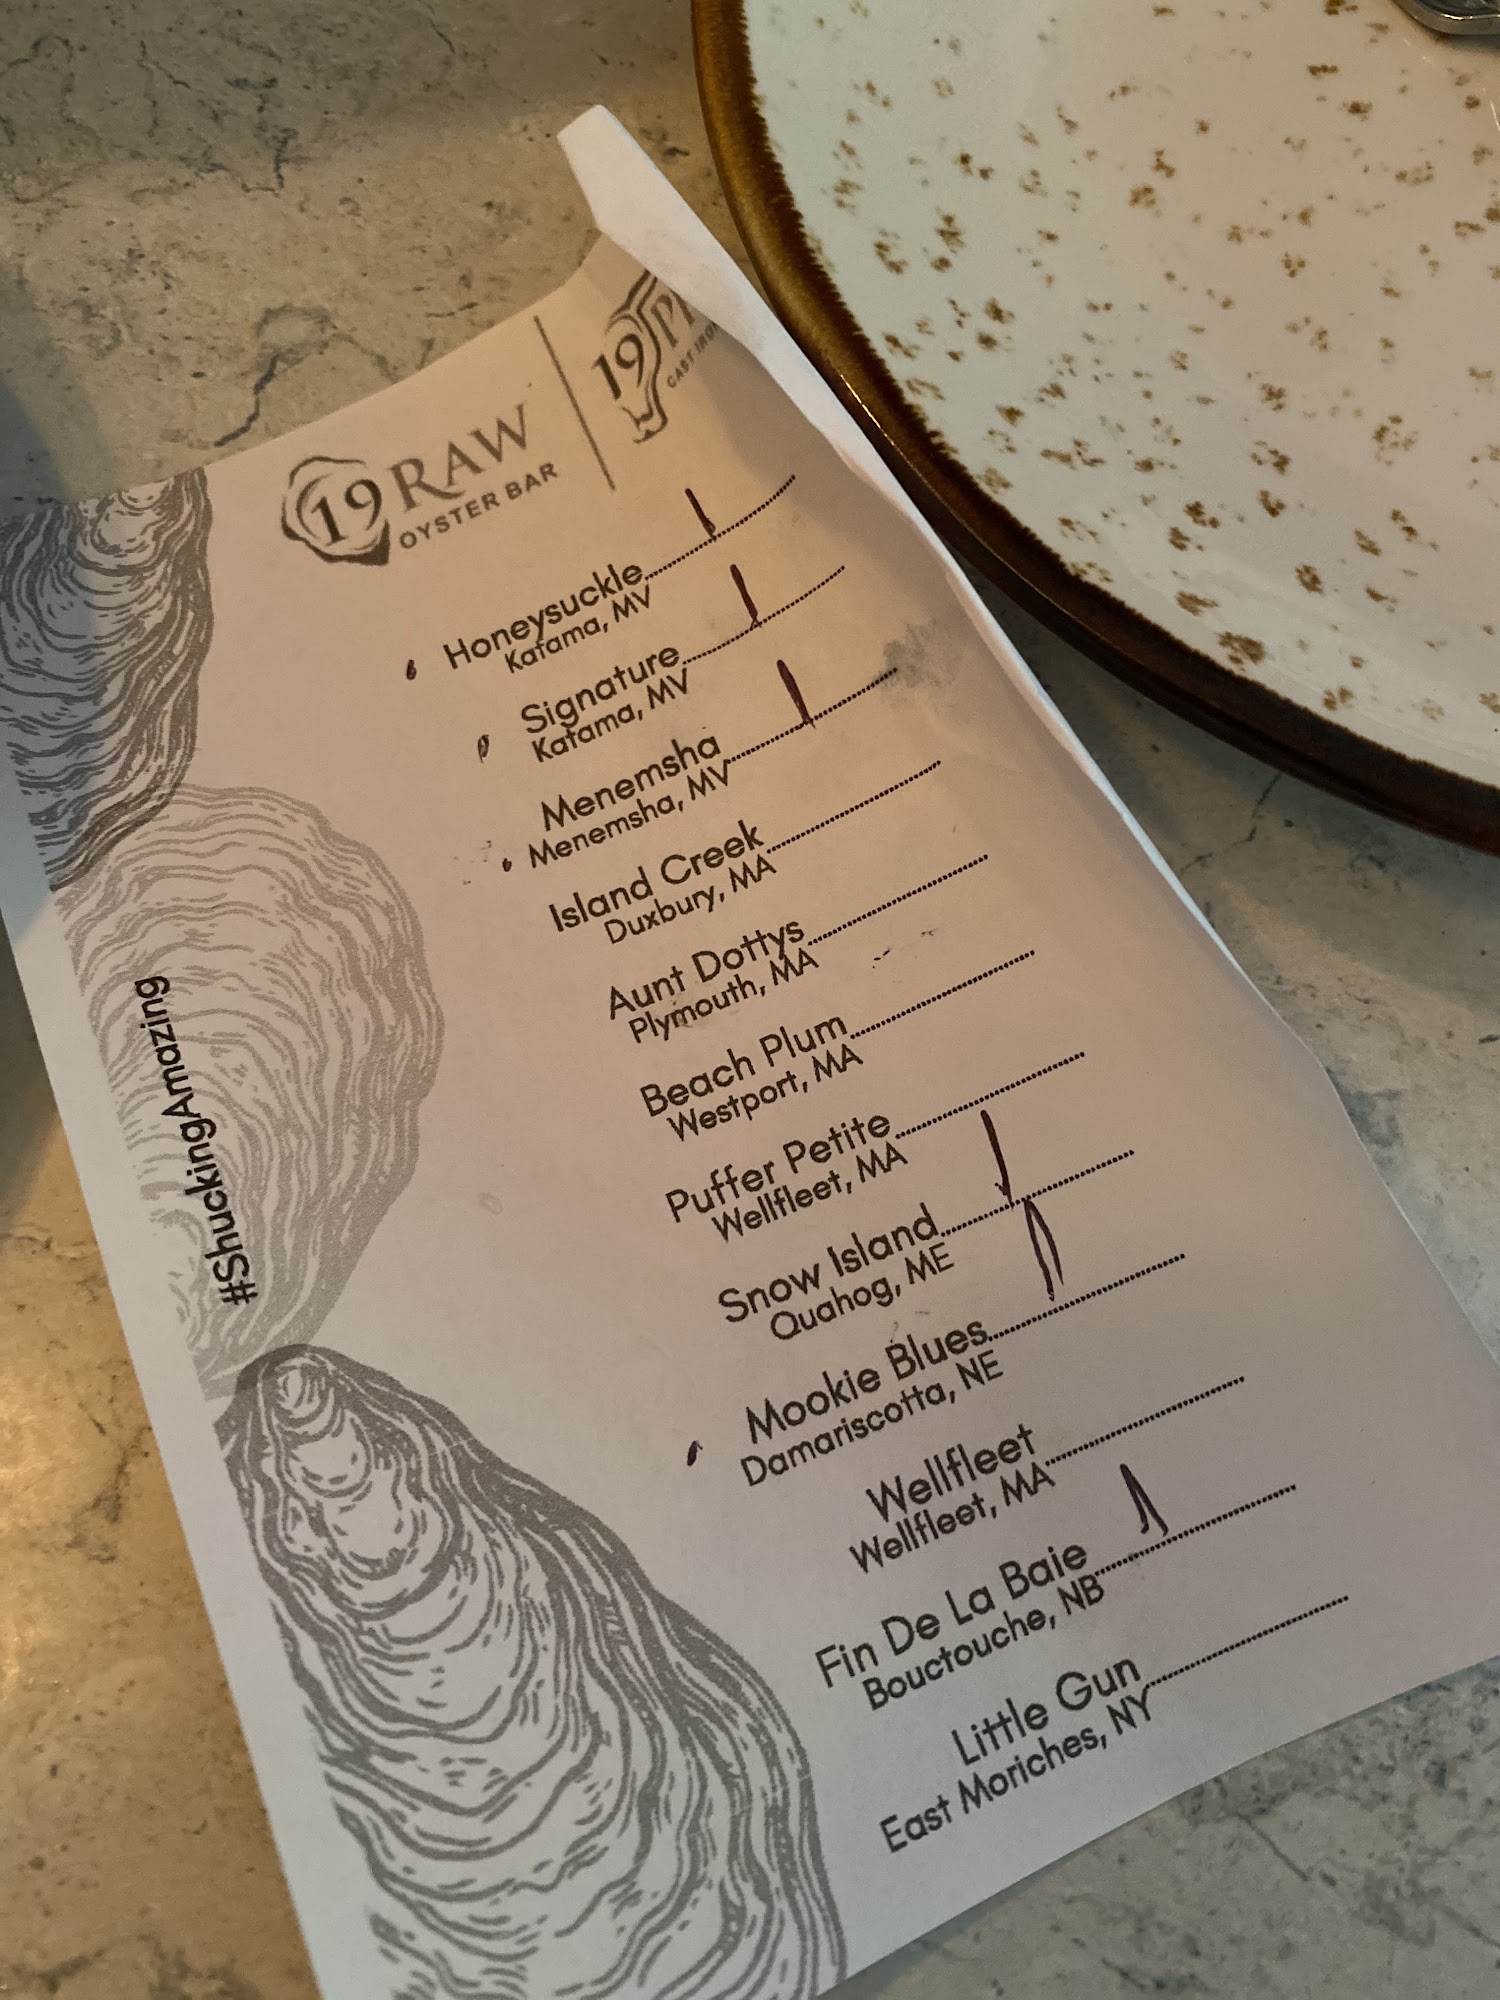 19 RAW
OYSTER BAR
19
CAST IRON
Honeysuckle
Katama, MV
Signature
Katama, MV
Menemsha
Menemsha, MV
Island Creek
Duxbury, MA
Aunt Dottys
Plymouth, MA
Beach Plum
Westport, MA
Puffer Petite
Wellfleet, MA
Snow Island
Quahog, ME
Mookie Blues
Damariscotta, NE
Wellfleet
Wellfleet, MA
Fin De La Baie
Bouctouche, NB
Little Gun
East Moriches, NY
#ShuckingAmazing